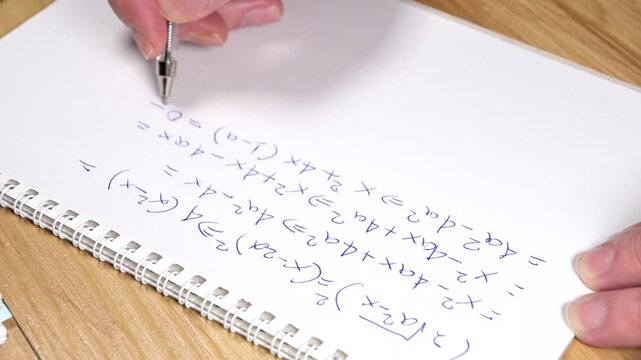 (2√a²-x)² = (x-2a)² ⇒ 4(a²-x) =
= x² - 4ax + 4a² ⇒ 4a² - 4x =
= x² - 4ax + 4a² ⇒ x² + 4x - 4ax =
= 4a² - 4a² ⇒ x² + 4x (1-a) = 0